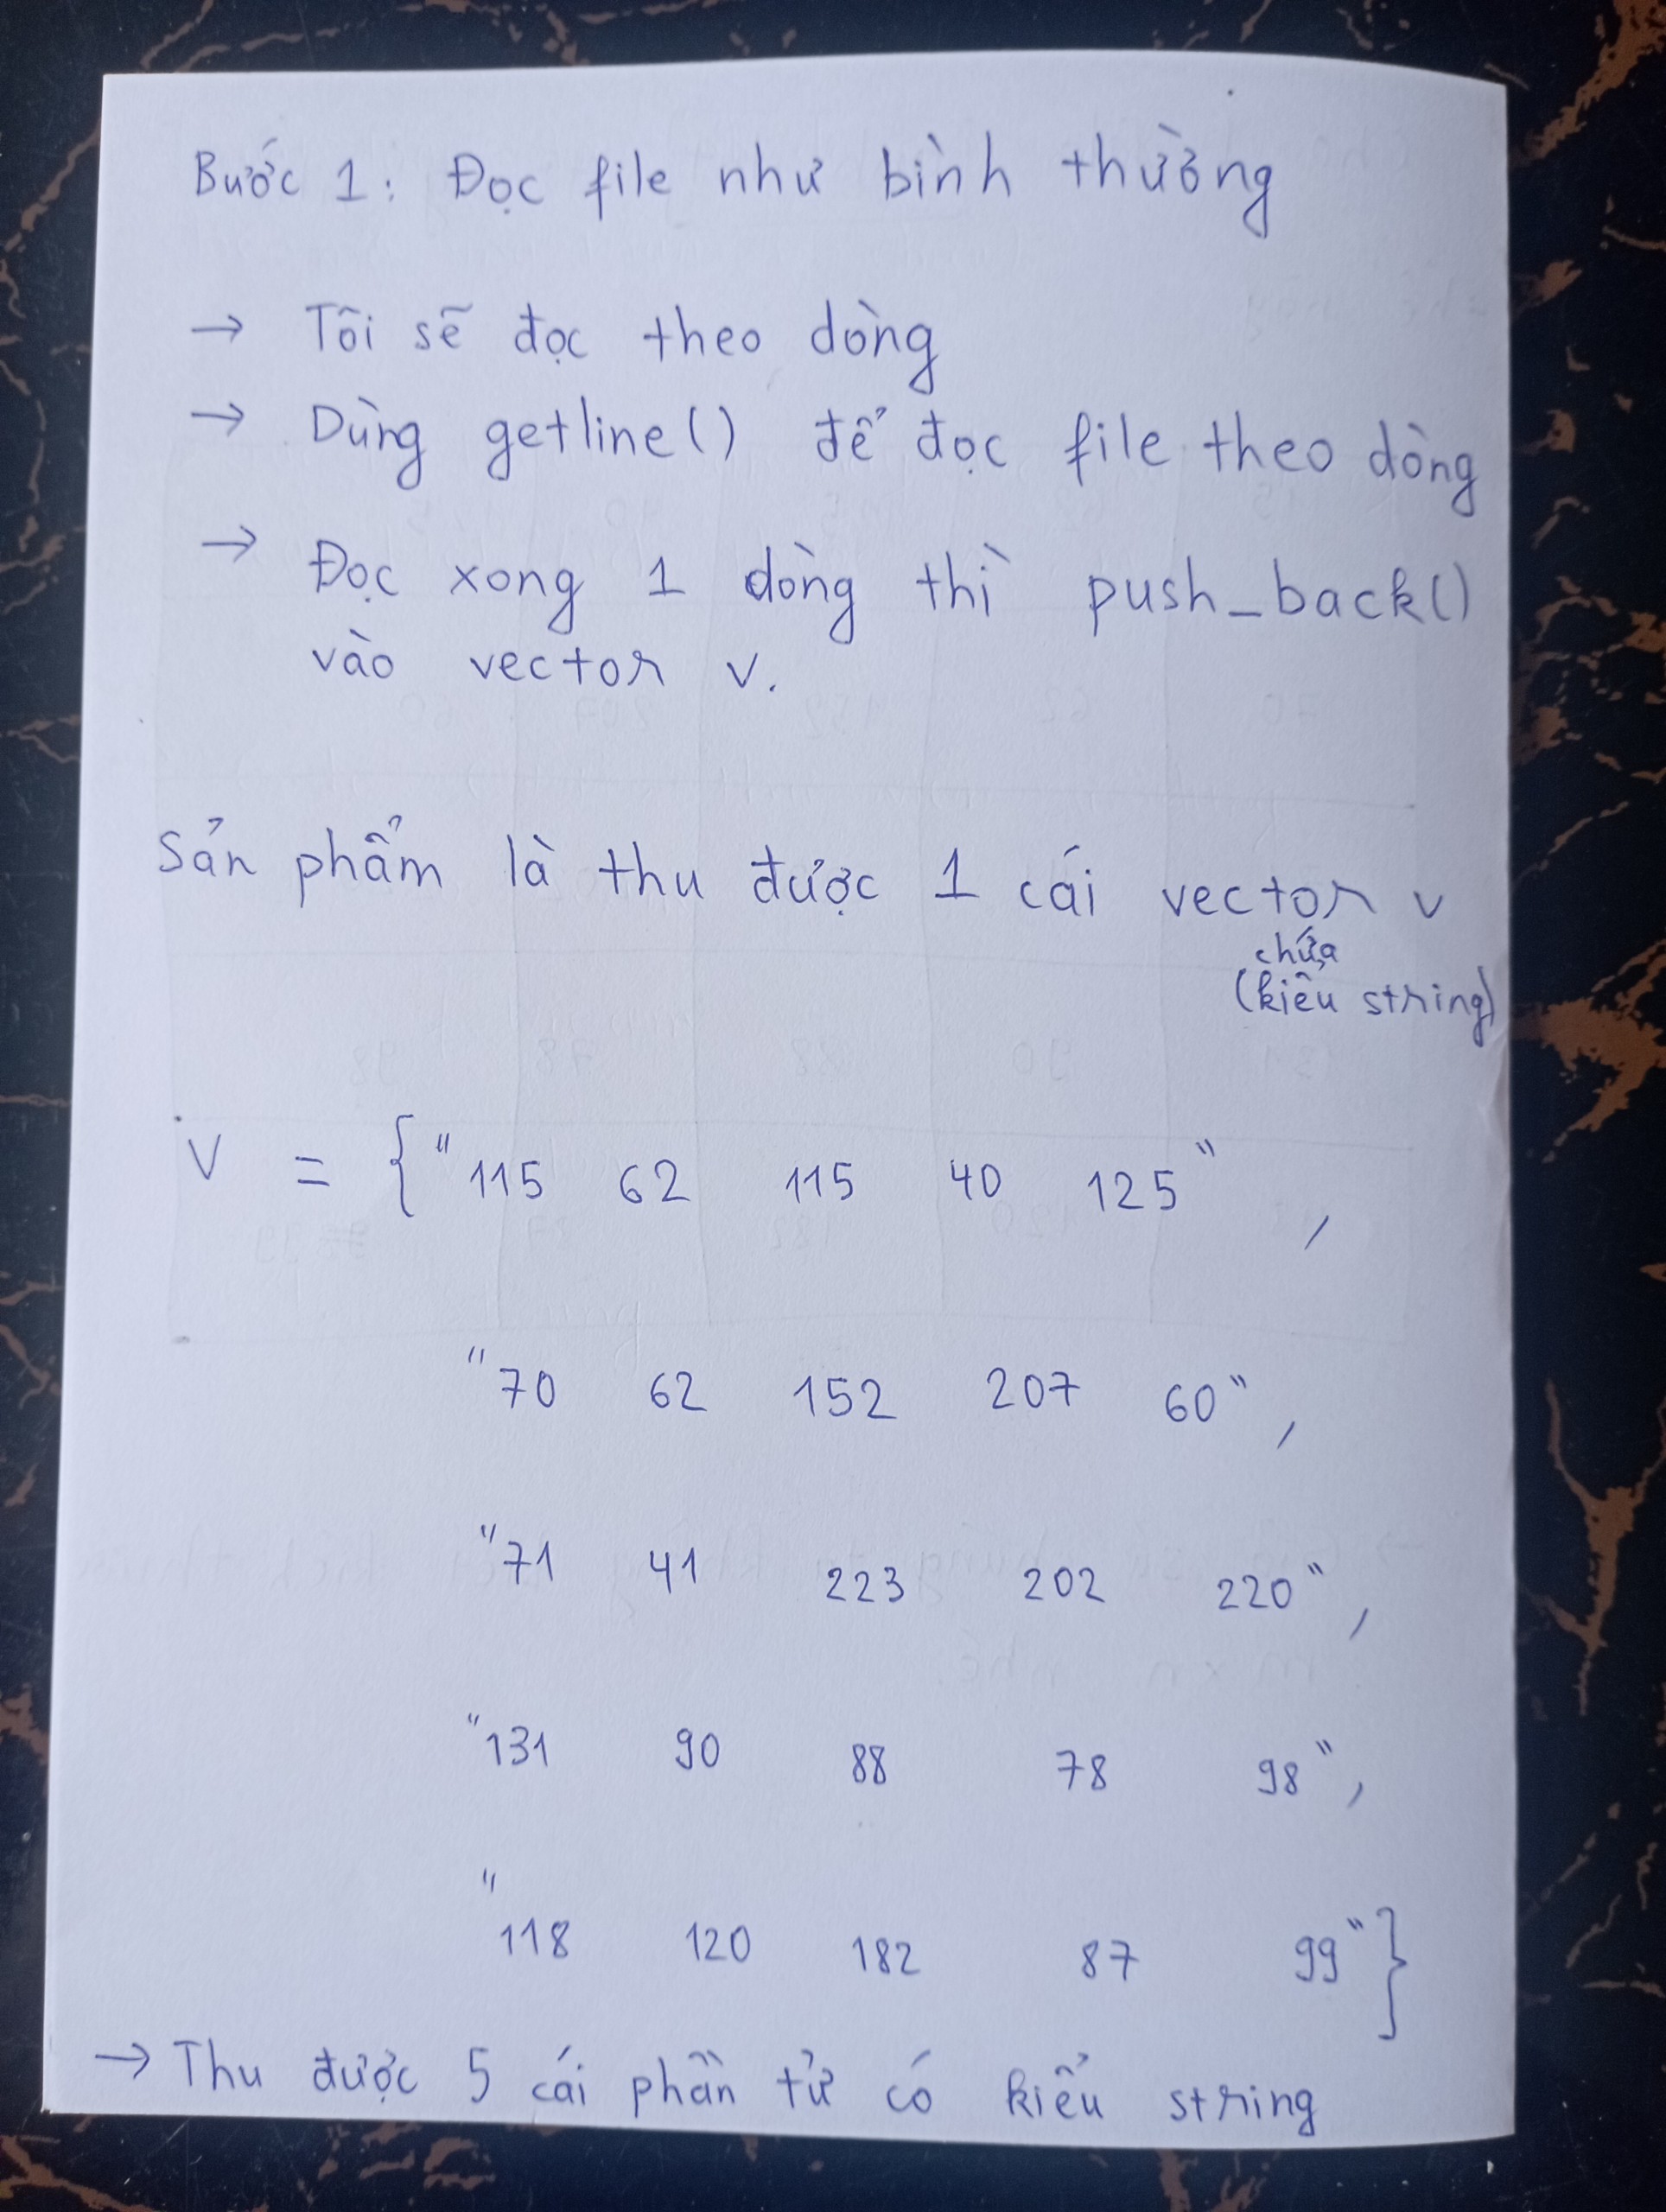 Bước 1: Đọc file như bình thường
→ Tôi sẽ đọc theo dòng
→ Dùng getline() để đọc file theo dòng
→ Đọc xong 1 dòng thì push_back()
vào vector v.
Sản phẩm là thu được 1 cái vector v
chứa
(kiểu string)
V = {"115 62 115 40 125",
"70 62 152 207 60",
"71 41 223 202 220",
"131 90 88 78 98",
"118 120 182 87 99"}
→ Thu được 5 cái phần tử có kiểu string